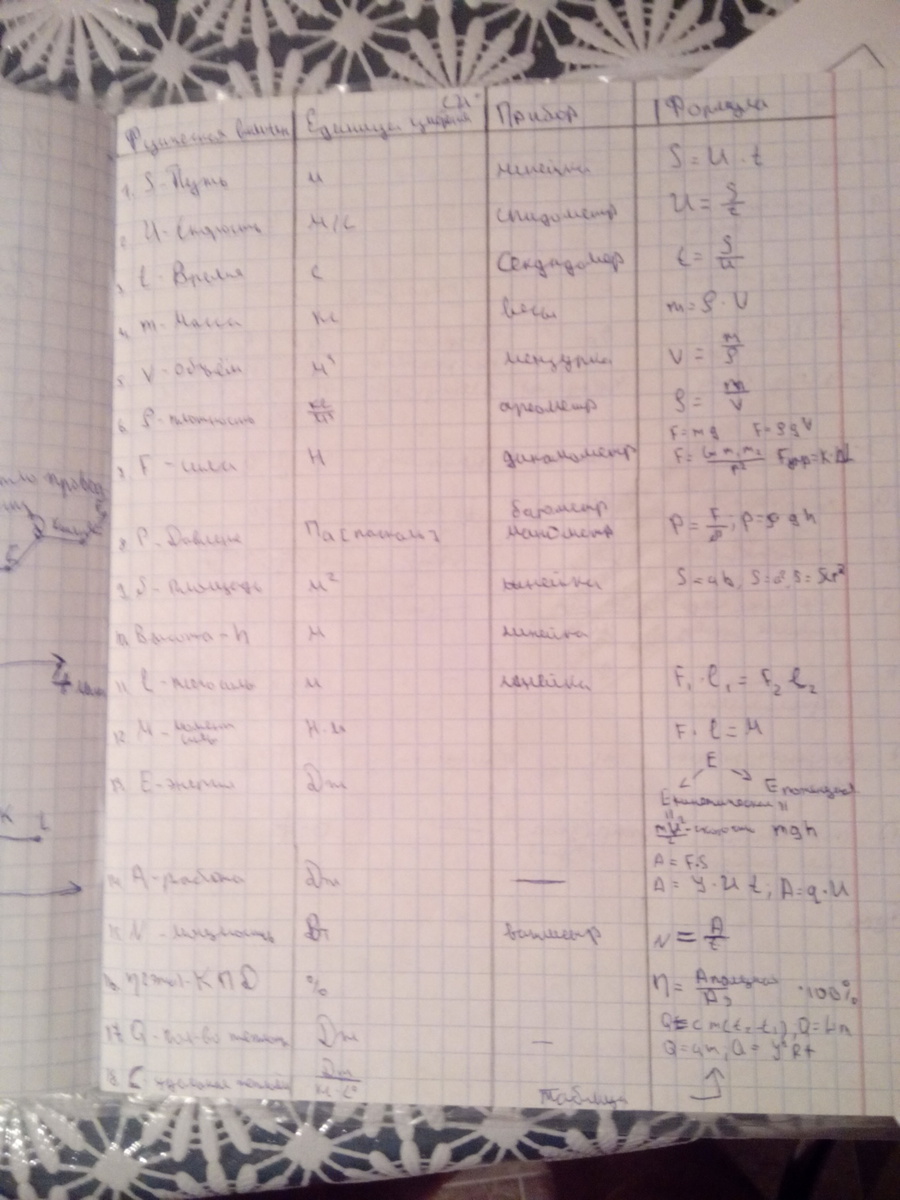 Физическая величина Единицы измерения СИ Прибор Формула
1. S - Путь м линейка S = U · t
2. U - Скорость м/с спидометр U = S/t
3. t - Время с Секундомер t = S/U
4. m - Масса кг весы m = ρ · V
5. V - объём м³ мензурка V = m/ρ
6. ρ - плотность кг/м³ ареометр ρ = m/V
F = mg F = ρgV
7. F - сила Н динамометр F = G m₁ m₂/r² Fупр = k·Δl
барометр
8. P - Давление Па (паскаль) манометр P = F/S; P = ρgh
9. S - площадь м² линейка S = ab, S = a², S = πr²
10. Высота - h м линейка
11. l - м линейка F₁ · l₁ = F₂ l₂
12. M - момент силы Н·м F · l = M
E
13. E - энергия Дж Eкинетическая Eпотенциал
mU²/2 - скорость mgh
A = F·S
14. A - работа Дж — A = Y · U t; A = q · U
15. N - мощность Вт ваттметр N = A/t
16. η этa - КПД % η = Aполезная/Aз · 100%
17. Q - кол-во теплоты Дж — Q = cm(t₂ - t₁), Q = Lm
Q = qm, Q = Y²Rt
18. C удельная Дж/кг·C° таблица